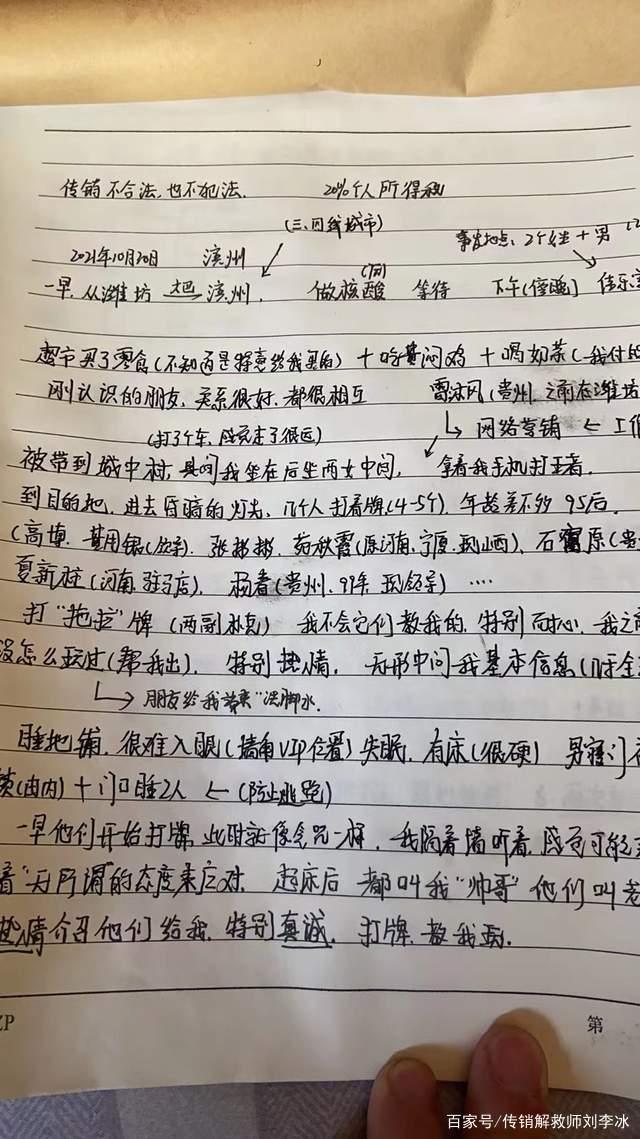 传销不合法,也不犯法. 20%个人所得税
(三、四线城市)
事发地点: 2个女+男
2021年10月20日 滨州
一早,从潍坊 大巴 滨州. 做核酸 等待 下午(傍晚) 佳乐
超市买了零食(不知道是特意给我买的)+吃黄焖鸡+喝奶茶(我付的
刚认识的朋友,关系很好,都很相互 雷沐风(贵州,之前在潍坊
(打了个车,感觉走了很远) 网络营销 ← 工作
被带到城中村,其间我坐在后坐两女中间, 拿着我手机打王者.
到目的地,进去昏暗的灯光,几个人打着牌(4-5个),年龄差不多95后.
(高博. 张彬彬, 苑秋霞(原河南,宁夏,到山西), 石富原(贵
夏新旺(河南,驻马店), 杨春(贵州,99年,到领导) ....
打"拖拉"牌(两副扑克) 我不会它们教我的,特别耐心,我之前
没怎么玩过(帮我出), 特别热情, 无形中问我基本信息(几乎全
朋友给我端来"洗脚水.
睡地铺,很难入眠(墙角VIP位置)失眠,有床(很硬) 男寝门
锁(由内)+门口睡2人 ← (防止逃跑)
一早他们开始打牌,此时就像会咒一样,我隔着墙听着,感觉可能
着"无所谓的态度来应对. 起床后 都叫我"帅哥"他们叫老
热情介绍他们给我,特别真诚, 打牌,教我玩.
ZP 第
百家号/传销解救师刘李冰